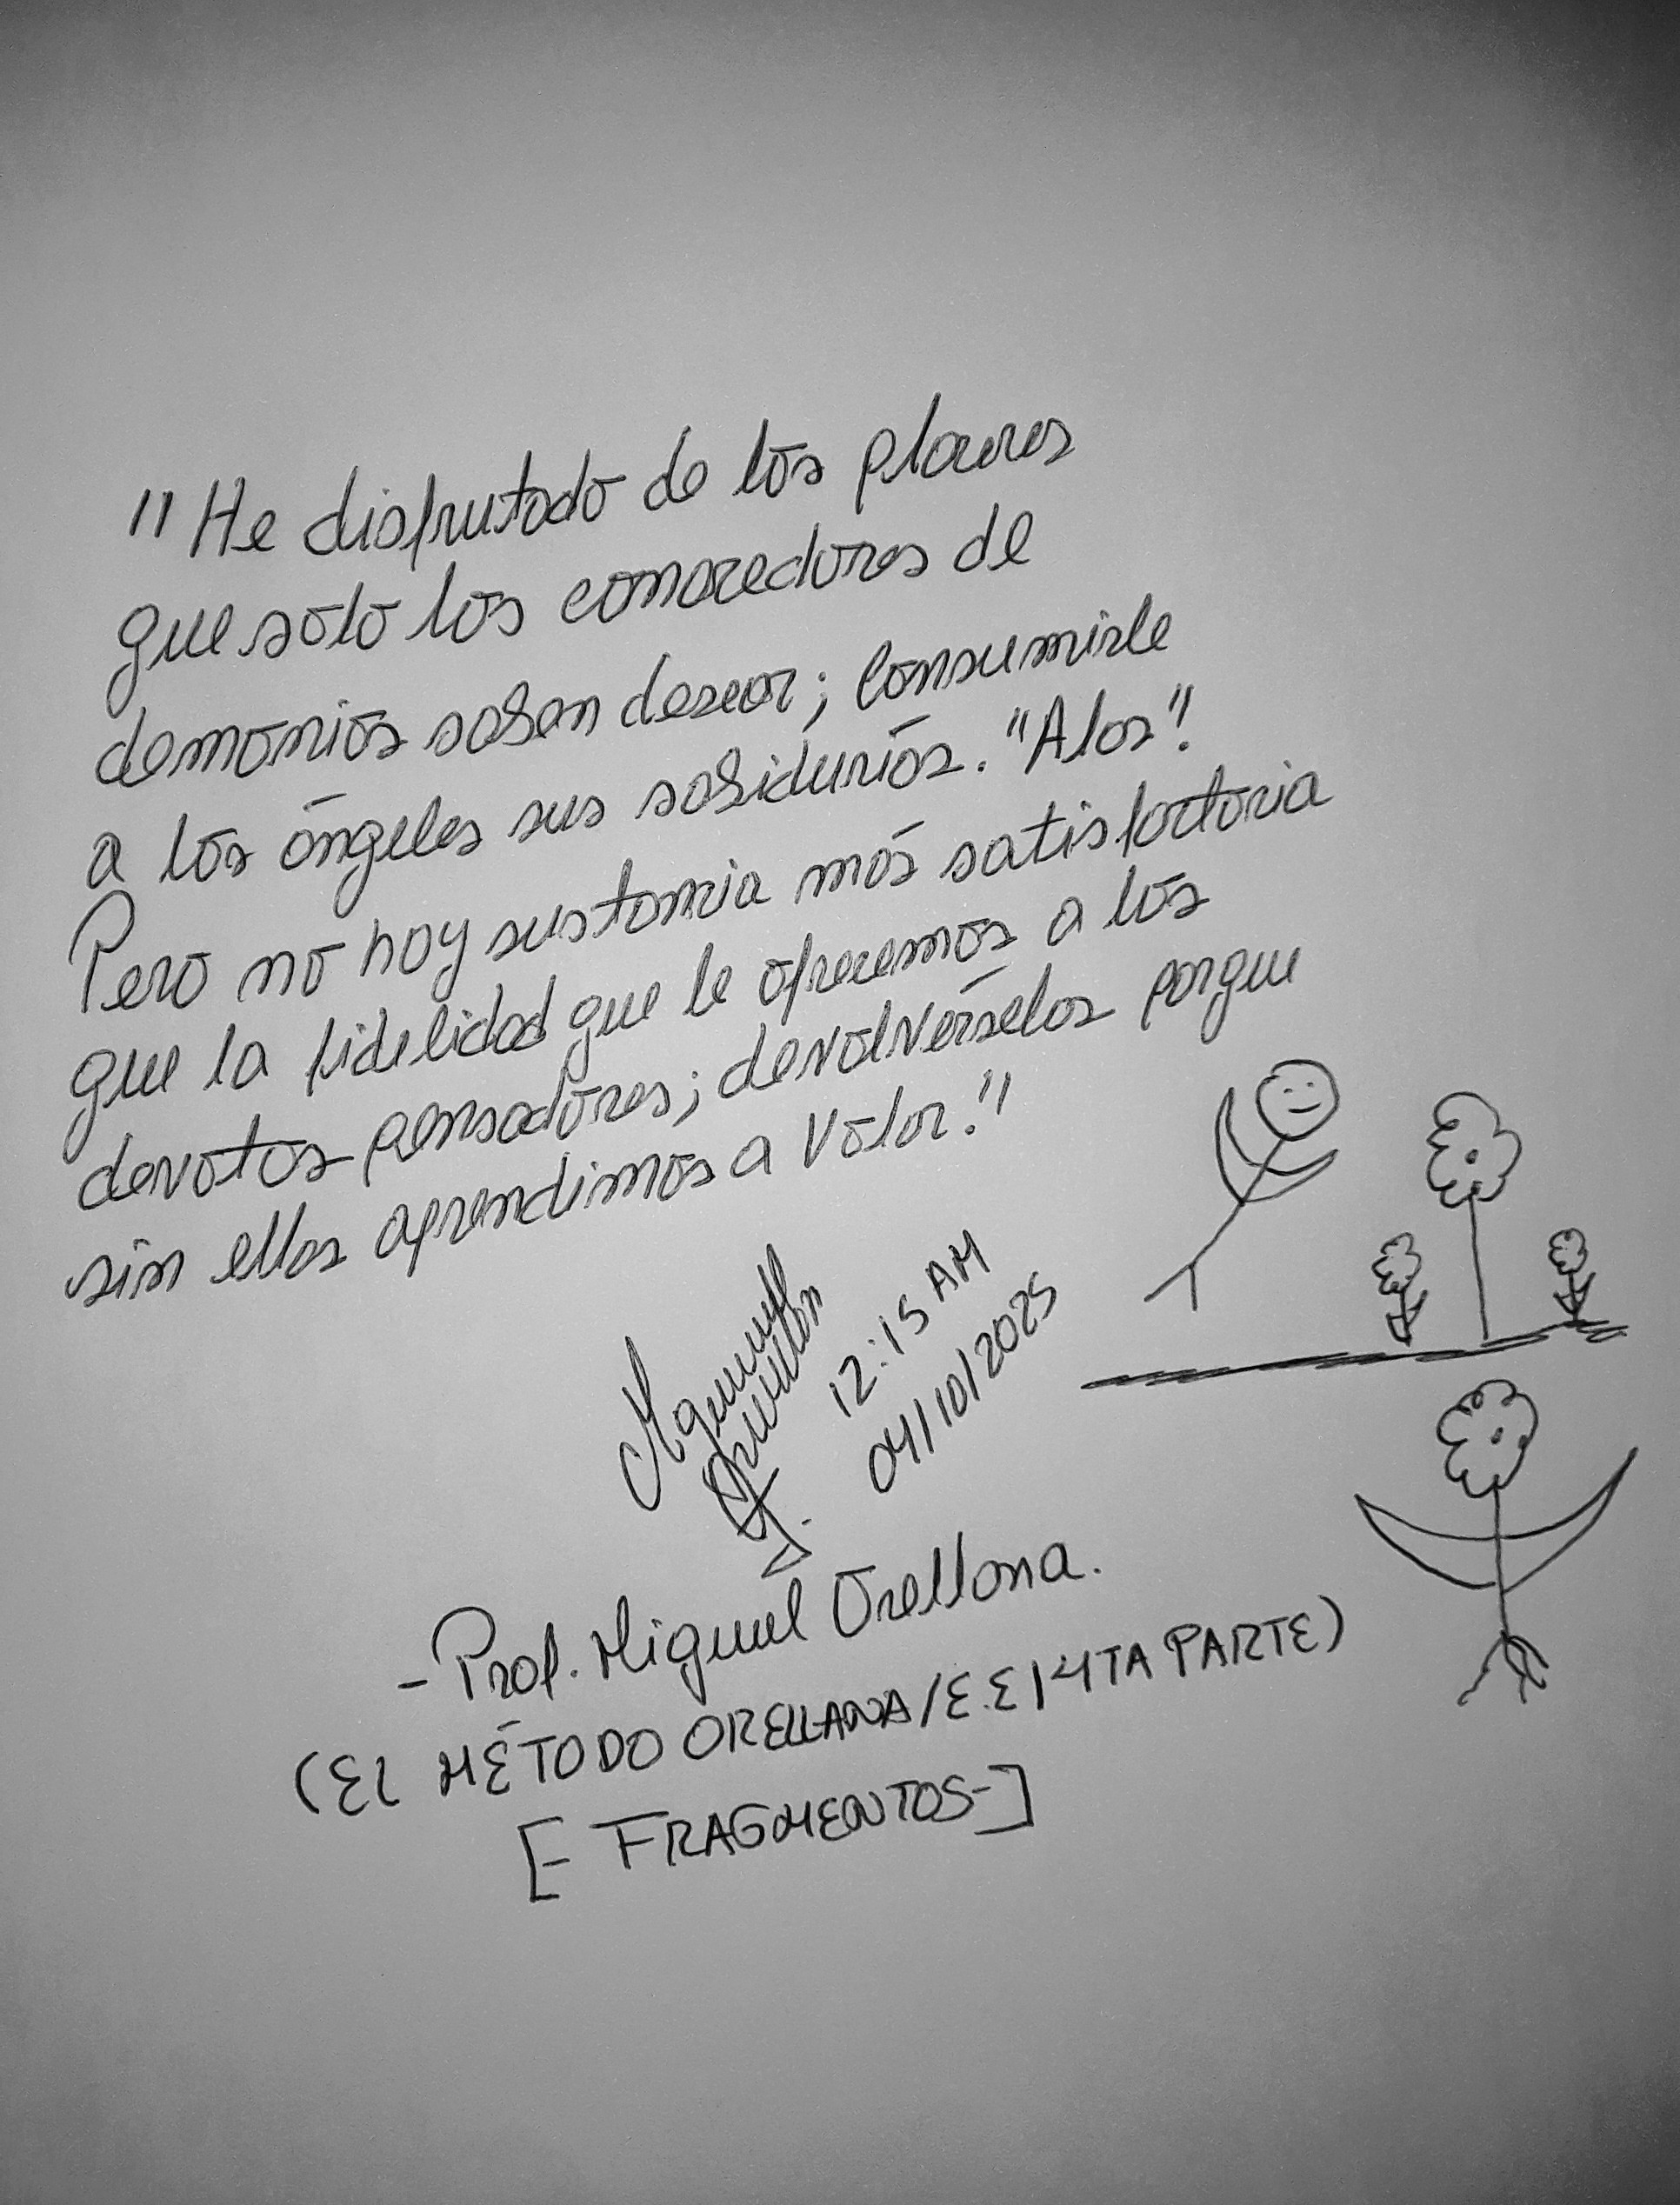 "He disfrutado de los placeres
que solo los conocedores de
demonios saben desear; consumirle
a los ángeles sus sabidurías. "Alas".
Pero no hay sustancia más satisfactoria
que la fidelidad que le ofrecemos a los
devotos pensadores; devolvérselas porque
sin ellas aprendimos a volar."
12:15 AM
04/10/2025
- Prof. Miguel Orellana.
(El MÉTODO ORELLANA/E.E/4TA PARTE)
[- FRAGMENTOS-]